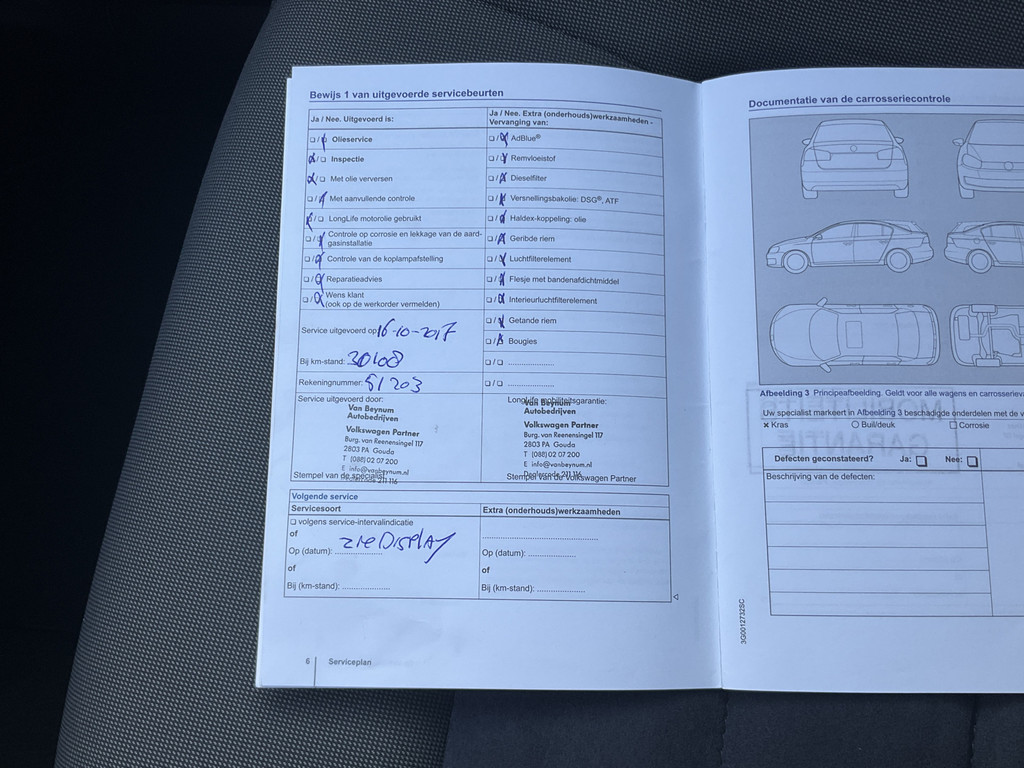 Bewijs 1 van uitgevoerde servicebeurten
Ja / Nee. Uitgevoerd is:
Olieservice
Inspectie
Met olie verversen
Met aanvullende controle
LongLife motorolie gebruikt
Controle op corrosie en lekkage van de aard-
gasinstallatie
Controle van de koplampafstelling
Reparatieadvies
Wens klant
(ook op de werkorder vermelden)
Ja / Nee. Extra (onderhouds)werkzaamheden -
Vervanging van:
AdBlue®
Remvloeistof
Dieselfilter
Versnellingsbakolie: DSG®, ATF
Haldex-koppeling: olie
Geribde riem
Luchtfilterelement
Flesje met bandenafdichtmiddel
Interieurluchtfilterelement
Getande riem
Bougies
Service uitgevoerd op 16-10-2017
Bij km-stand: 30108
Rekeningnummer: 51203
Service uitgevoerd door:
Van Beynum
Autobedrijven
Volkswagen Partner
Burg. van Reenensingel 117
2803 PA Gouda
T (088) 02 07 200
E info@vanbeynum.nl
Stempel van de specialist
LongLife mobiliteitsgarantie:
Van Beynum
Autobedrijven
Volkswagen Partner
Burg. van Reenensingel 117
2803 PA Gouda
T (088) 02 07 200
E info@vanbeynum.nl
Dealercode 211 116
Stempel van de Volkswagen Partner
Volgende service
Servicesoort
volgens service-intervalindicatie
of
Op (datum): ZIE DISPLAY
of
Bij (km-stand):
Extra (onderhouds)werkzaamheden
Op (datum):
of
Bij (km-stand):
6 Serviceplan
Documentatie van de carrosseriecontrole
Afbeelding 3 Principeafbeelding. Geldt voor alle wagens en carrosserie
Uw specialist markeert in Afbeelding 3 beschadigde onderdelen met de
Kras Buil/deuk Corrosie
Defecten geconstateerd? Ja: Nee:
Beschrijving van de defecten:
3G0012732SC